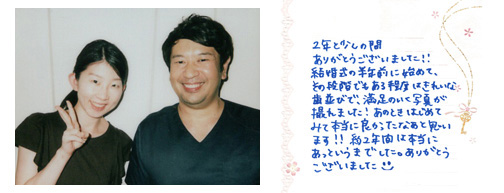 2年と少しの間
ありがとうございました!!
結婚式の半年前に始めて、
その段階でもある程度はきれいな
歯並びで、満足のいく写真が
撮れました!あのときはじめて
みて本当に良かったなあと思い
ます!!約2年間は本当に
あっというまでした。ありがとう
ございました